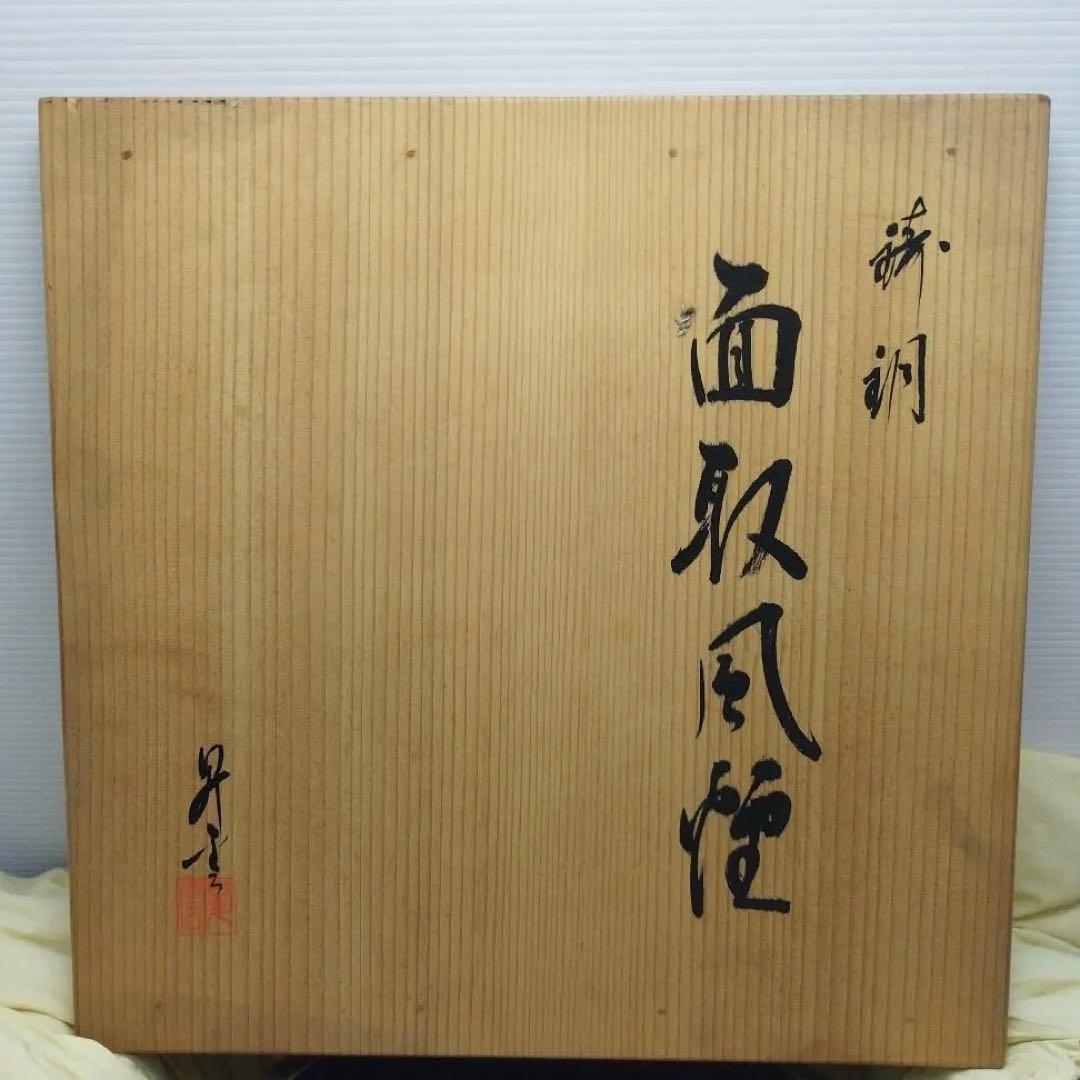 鋳銅
面取風炉
昇雲